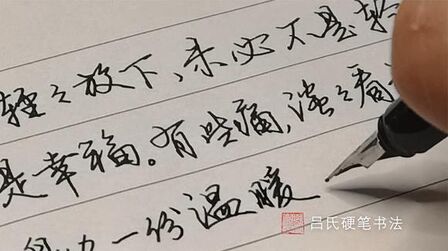 轻轻放下,未必不是轻
是幸福。有些痛,淡淡看
一份温暖
吕氏硬笔书法